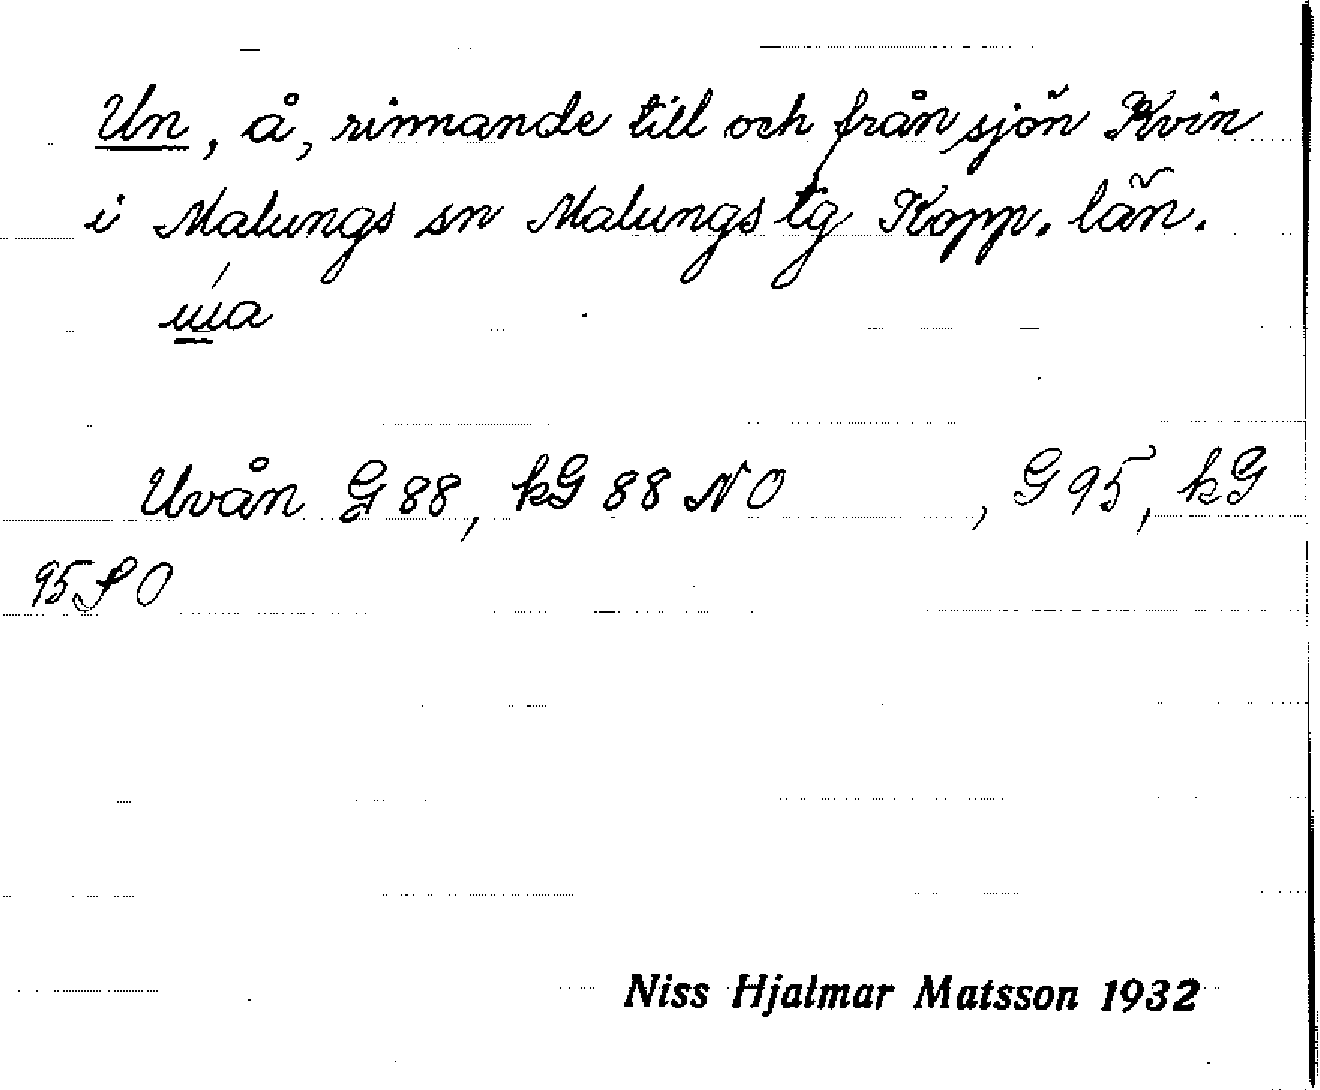 Un, å, rinnande till och från sjön Kvin
i Malungs sn Malungs tg Kopp. län.
Uvån G 88, kG 88 N O , G 95, kG
95 S O
Niss Hjalmar Matsson 1932